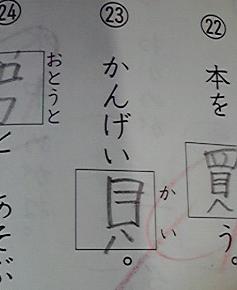 ㉒ 本を買う。
㉓ かんげい貝。
かい
㉔
おとうと
と あそぶ